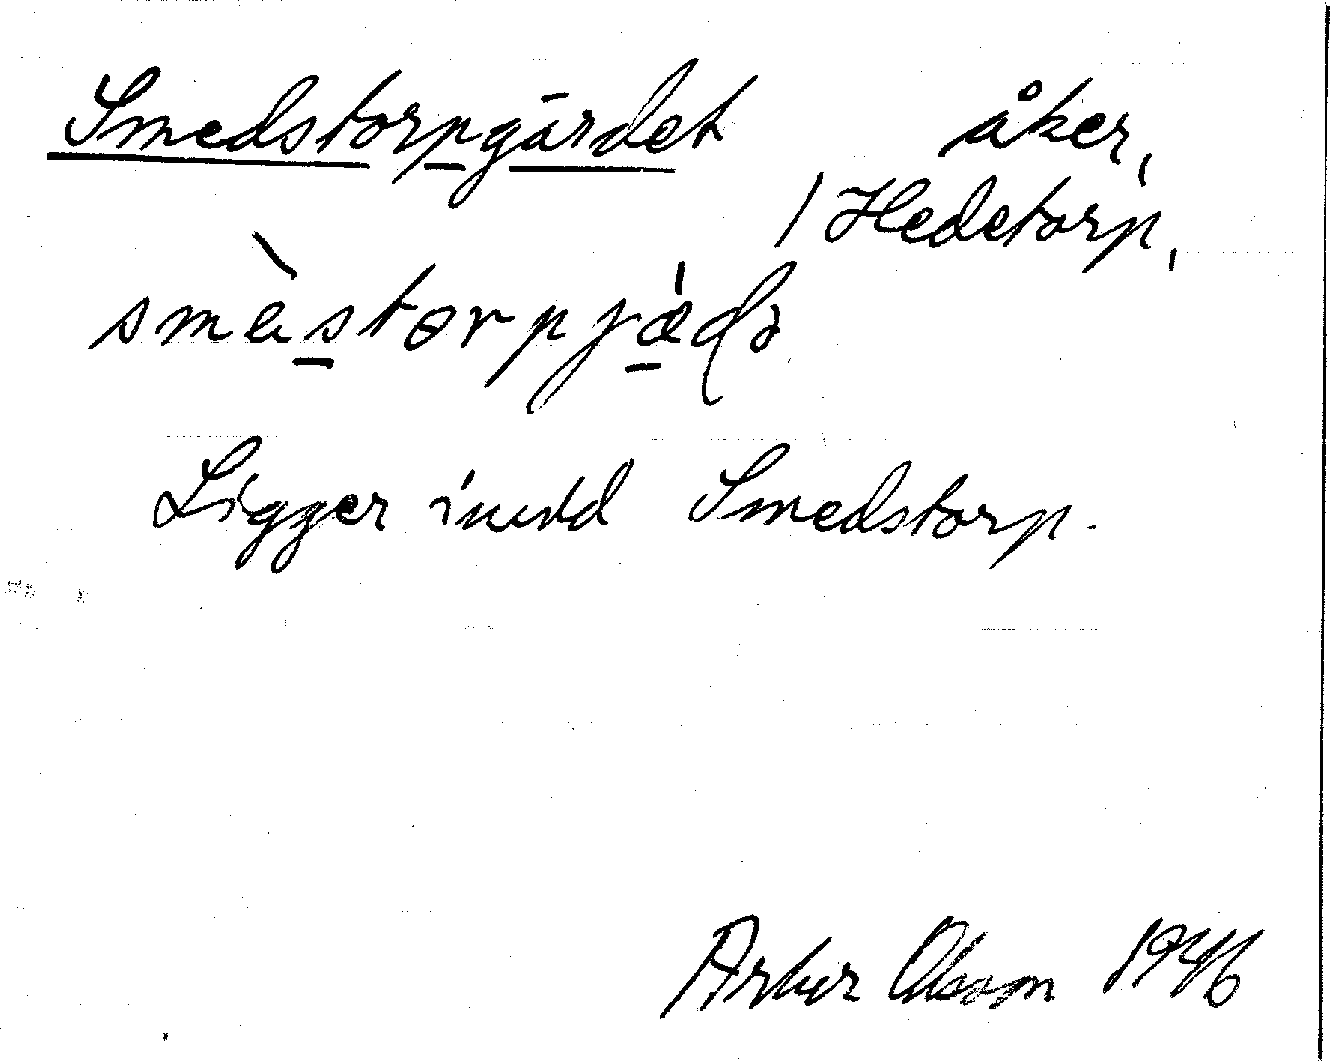 Smedstorpgärdet åker,
/ Hedetorp,
smèstorpjæ̍də
Ligger invid Smedstorp.
Artur Olsson 1946